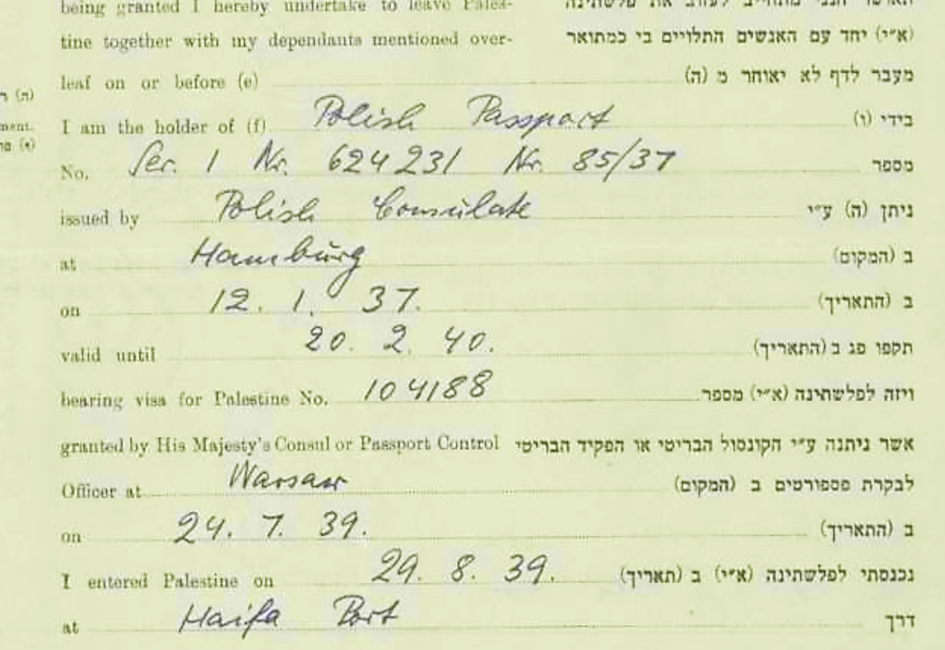 being granted I hereby undertake to leave Pales- תאושר הנני מתחייב לעזוב את פלשתינה
tine together with my dependants mentioned over- (א״י) יחד עם האנשים התלויים בי כמתואר
leaf on or before (e) מעבר לדף לא יאוחר מ (ה)
I am the holder of (f) Polish Passport בידי (ו)
No. Ser. 1 Nr. 624231 Nr. 85/37 מספר
issued by Polish Consulate ניתן (ה) ע״י
at Hamburg ב (המקום)
on 12. 1. 37. ב (התאריך)
valid until 20. 2. 40. תקפו פג ב (התאריך)
bearing visa for Palestine No. 104188 ויזה לפלשתינה (א״י) מספר
granted by His Majesty's Consul or Passport Control אשר ניתנה ע״י הקונסול הבריטי או הפקיד הבריטי
Officer at Warsaw לבקרת פספורטים ב (המקום)
on 24. 7. 39. ב (התאריך)
I entered Palestine on 29. 8. 39. נכנסתי לפלשתינה (א״י) ב (תאריך)
at Haifa Port דרך